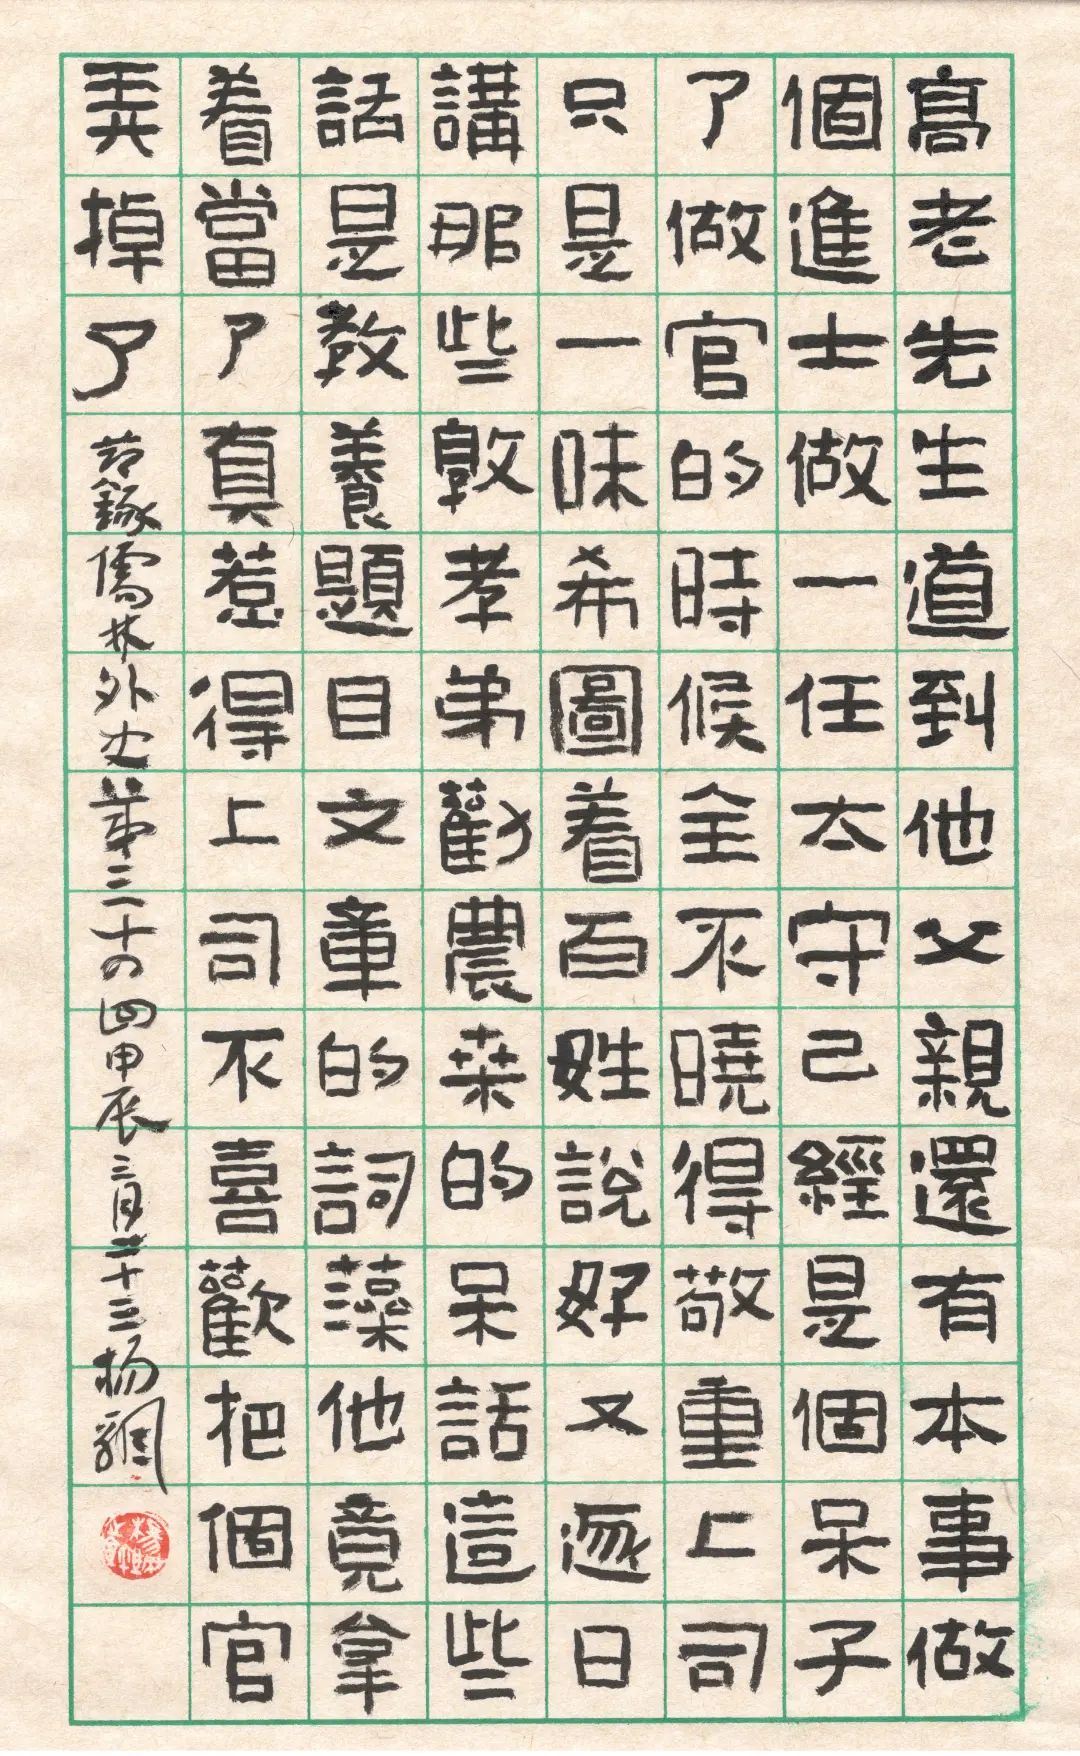 高老先生道到他父親還有本事做
個進士做一任太守已經是個呆子
了做官的時候全不曉得敬重上司
只是一味希圖着百姓說好又逐日
講那些敦孝弟勸農桒的呆話這些
話是教養題目文章的詞藻他竟拿
着當了真惹得上司不喜歡把個官
弄掉了 节錄儒林外史第三十四回甲辰三月二十三杨